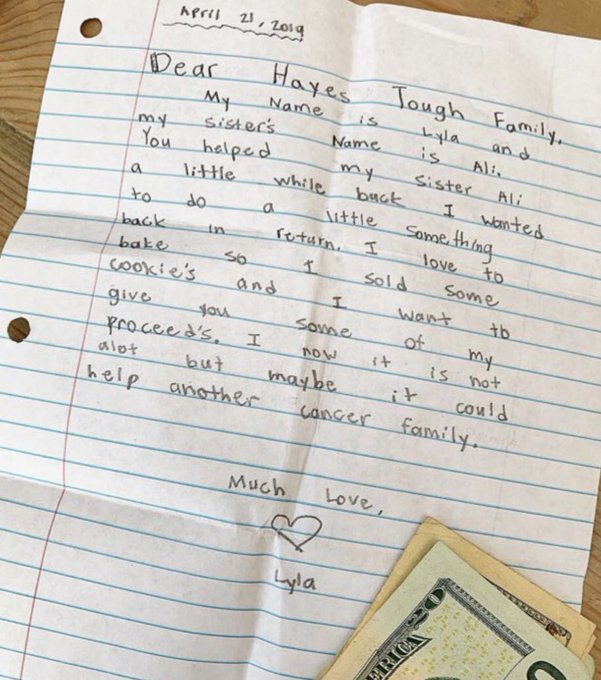 April 21, 2019
Dear Hayes Tough Family,
My Name is Lyla and
my sister's Name is Ali.
You helped my sister Ali
a little while back I wanted
to do a little something
back in return. I love to
bake so I sold some
cookie's and I want to
give you some of my
proceed's. I now it is not
alot but maybe it could
help another cancer family.
Much Love,
Lyla
20
ERICA